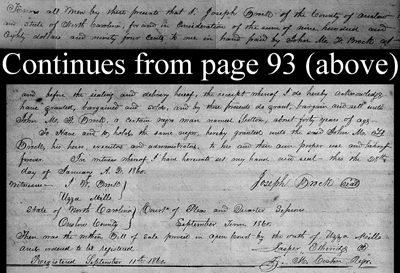 Know all Men by these presents that I Joseph Brock of the County of Onslow
and State of North Carolina, for and in Consideration of the sum of nine hundred and
Eighty dollars and ninety four cents to me in hand paid by John M. F. Brock at
Continues from page 93 (above)
and before the sealing and delivery hereof, the receipt whereof I do hereby acknowledge
have granted, bargained and sold, and by these presents do grant, bargain and sell unto
John M. F. Brock, a certain negro man named about forty years of age
To Have and to hold, the same negro, hereby granted unto the said John M. F.
Brock, his heirs, executors and administrators, to his and their own proper use and behoof
forever. In witness whereof I have hereunto set my hand and seal this the 28th
day of January A. D. 1860.
Witnesses J. W. Brock
Joseph Brock Seal
Uzza Mills
State of North Carolina Court of Pleas and Quarter Sessions
Onslow County September Term 1860.
Then was the within Bill of sale proved in open court by the oath of Uzza Mills
and ordered to be registered. Jasper Etheridge
Registered September 11th 1860.